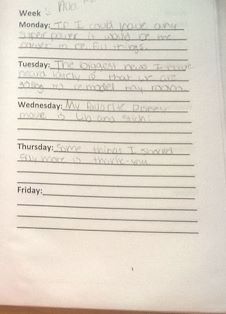 Week -
Monday: If I could have any
super power it would be the
power to re-fill things.
Tuesday: The biggest news I have
heard lately is that we are
going to remodel my room.
Wednesday: My favorite Disney
movie is Lilo and Stich.
Thursday: Some things I should
say more is thank-you
Friday:
1